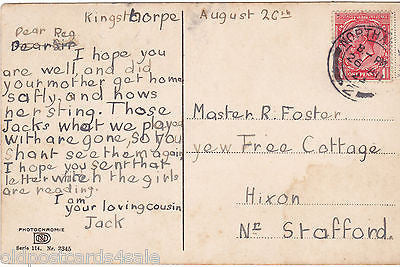 Kingsthorpe August 26th
Dear Reg
Dear
I hope you
are well, and did
your mother get home
safly, and hows
her sting. Those
Jacks what we played
with are gone, so you
shant see them again
I hope you sent that
letter which the girls
are reading.
I am
your loving cousin
Jack
Master R. Foster
yew Free Cottage
Hixon
Nr Stafford.
PHOTOCHROMIE
Serie 114. Nr. 2345
NORTH
oldpostcards4sale